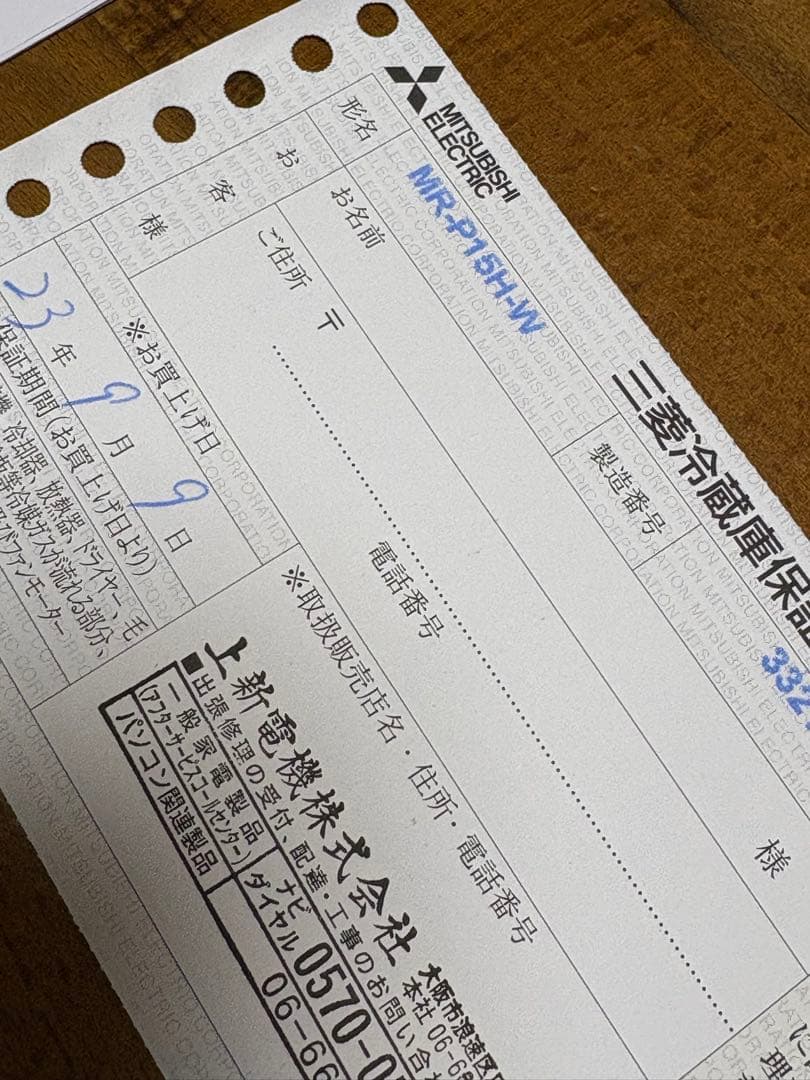 MITSUBISHI
ELECTRIC
三菱冷蔵庫保証
形名
MR-P15H-W
製造番号
332
お客様
お名前
様
ご住所 〒
電話番号
※お買上げ日
23年9月9日
※取扱販売店名・住所・電話番号
保証期間(お買上げ日より)
冷却器、散熱器、ドライヤー、毛
等冷媒ガスが流れる部分、
及びファンモーター
上新電機株式会社
大阪市浪速区
本社06-6
■出張修理の受付、配達・工事のお問い合わ
一般家電製品
(アフターサービスコールセンター)
ナビ
ダイヤル
0570-0
パソコン関連製品
06-66